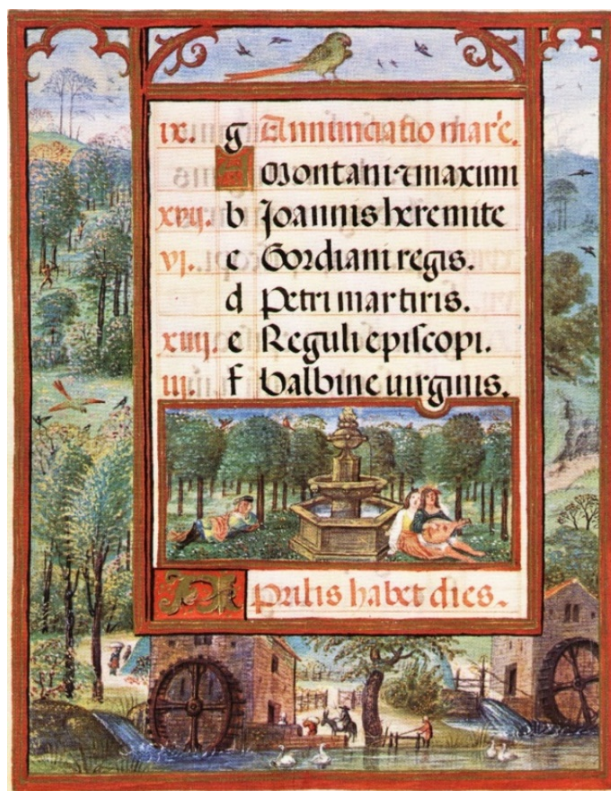 ix. g Annunciatio mar'e.
A Montani ⁊ maximi
xvij. b Joannis heremite
vj. c Gordiani regis.
d Petri martiris.
xiiij. e Reguli epiſcopi.
iij. f Balbine uirginis.
Aprilis habet dies.